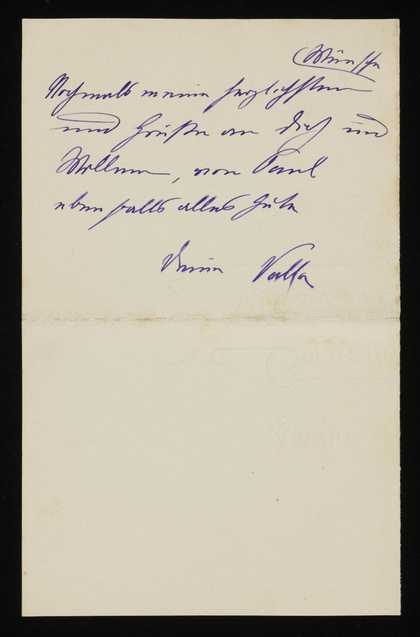 Wünsche
Nochmals meine herzlichsten
und Grüße an Dich und
Willem, von Paul
ebenfalls alles Gute
Deine